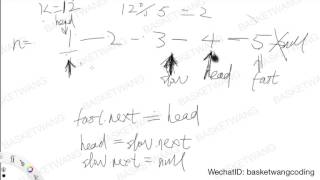 K=12    12%5=2
head
n= 1 — 2 - 3 — 4 — 5 null
slow head fast
fast.next = head
head = slow.next
slow.next = null
WechatID: basketwangcoding
BASKETWANG